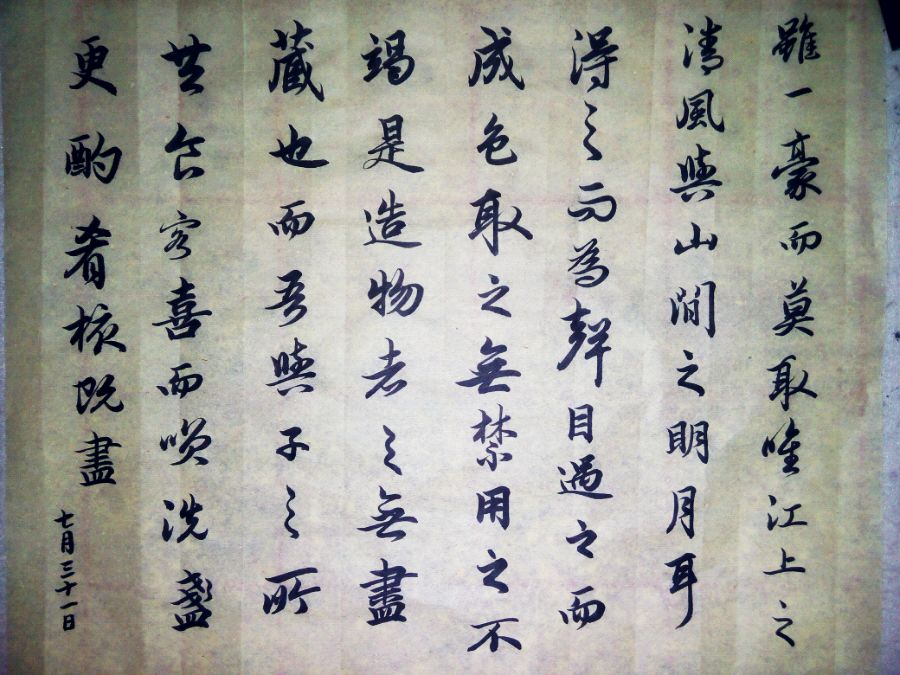 雖一豪而莫取唯江上之
清風與山間之明月耳
得之而為聲目過之而
成色取之無禁用之不
竭是造物者之無盡
藏也而吾與子之所
共食客喜而笑洗盞
更酌肴核既盡
七月三十一日